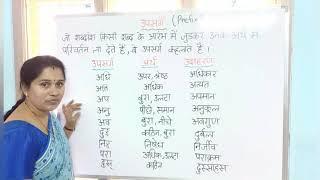 उपसर्ग (Prefix
जो शब्दांश किसी शब्द के आरंभ में जुड़कर उनके अर्थ में
परिवर्तन ला देते हैं, वे उपसर्ग कहलाते हैं।
उपसर्ग अर्थ उदाहरण
अधि ऊपर, श्रेष्ठ अधिकार
अति अधिक अत्यंत
अप बुरा, उल्टा अपमान
अनु पीछे, समान अनुकूल
अव बुरा, नीचे अवगुण
दुर् कठिन, बुरा
निर् निषेध निर्जीव
परा अधिक, उल्टा पराक्रम
दुस् कठिन दुस्साहस